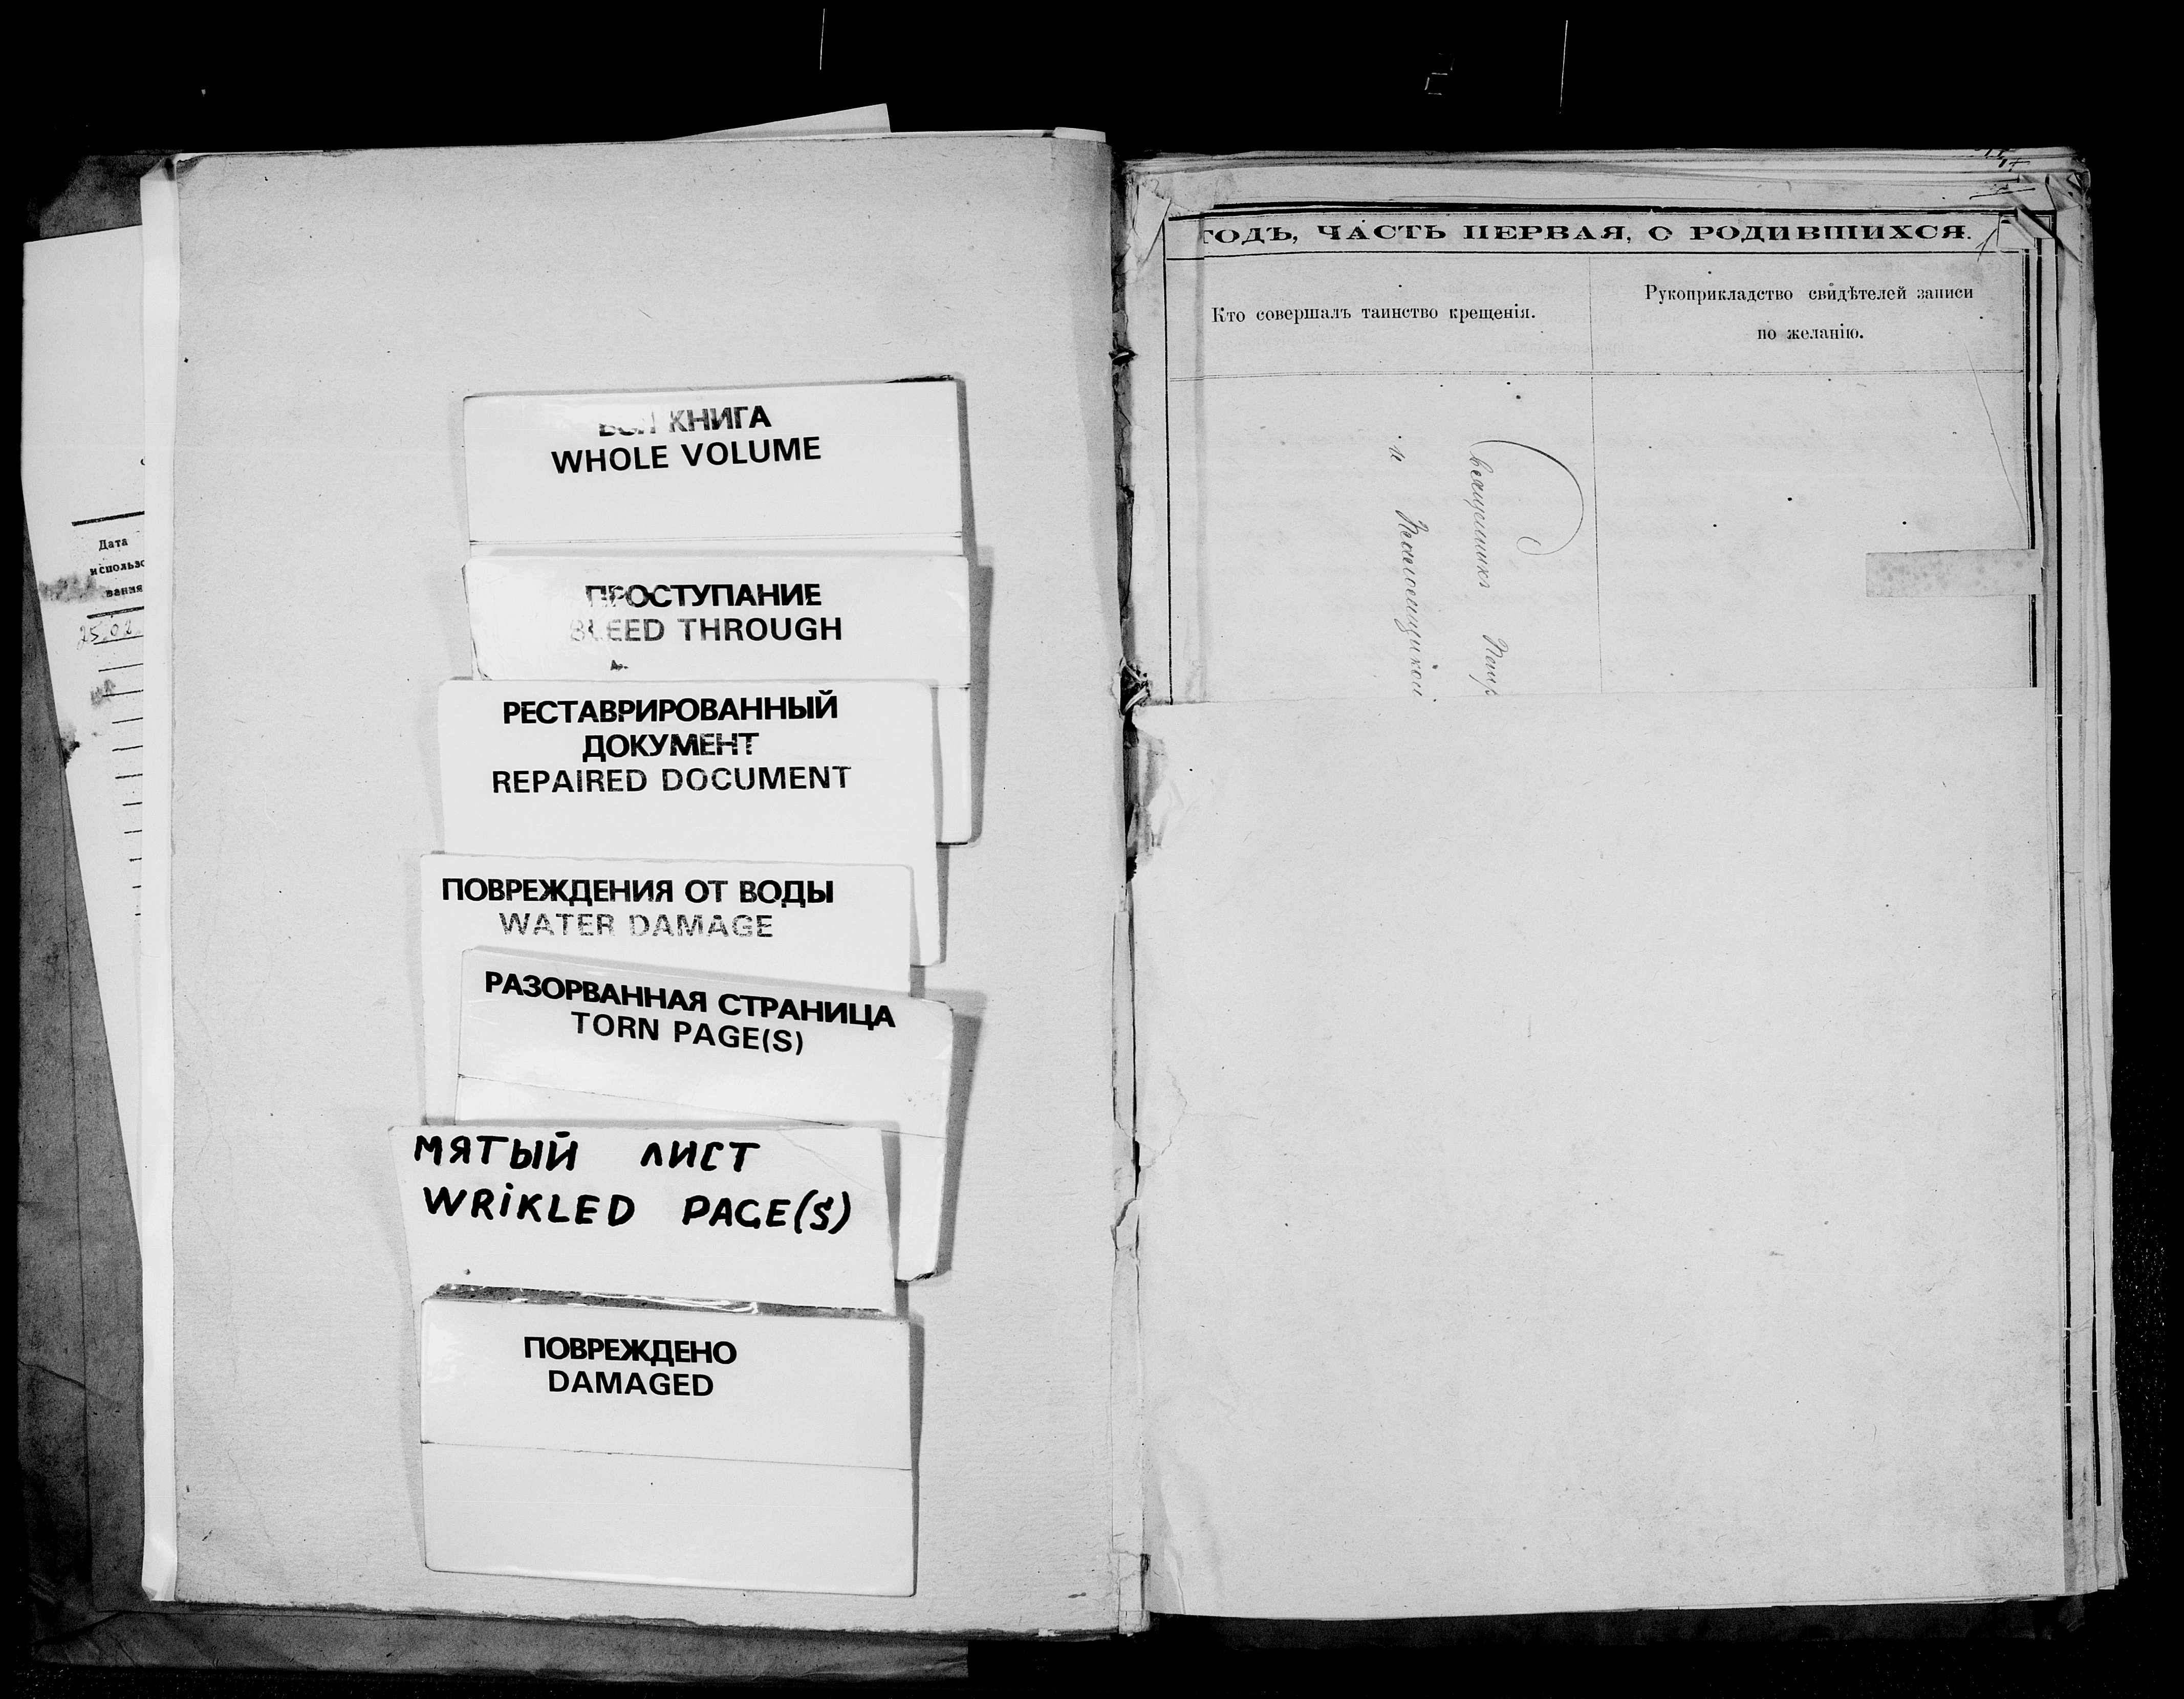 Дата
использо
вания
25.02
ВСЯ КНИГА
WHOLE VOLUME
ПРОСТУПАНИЕ
BLEED THROUGH
РЕСТАВРИРОВАННЫЙ
ДОКУМЕНТ
REPAIRED DOCUMENT
ПОВРЕЖДЕНИЯ ОТ ВОДЫ
WATER DAMAGE
РАЗОРВАННАЯ СТРАНИЦА
TORN PAGE(S)
МЯТЫЙ ЛИСТ
WRiKLED PAGE(S)
ПОВРЕЖДЕНО
DAMAGED
ГОДЪ, ЧАСТЬ ПЕРВАЯ, О РОДИВШИХСЯ.
Кто совершалъ таинство крещенія.
Рукоприкладство свидѣтелей записи
по желанію.
Священникъ Петр
и